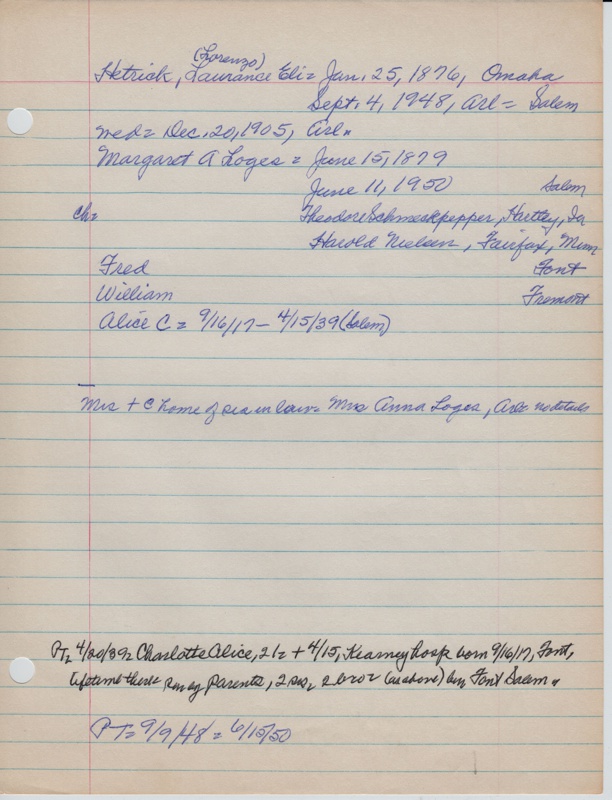 (Lorenzo)
Hetrick, Laurance Eli = Jan. 25, 1876, Omaha
Sept. 4, 1948, Arl = Salem
wed = Dec. 20, 1905, Arl.
Margaret A Loges = June 15, 1879
June 11, 1950 Salem
ch = Theodore Schmeckpepper, Hartley, Ia
Harold Nielsen, Fairfax, Minn
Fred Font
William Fremont
Alice C = 9/16/17 - 4/15/39 (Salem)
Mrs + @ home of sis in law = Mrs Anna Loges, Arl = no details
PT = 4/20/39 = Charlotte Alice, 21 = + 4/15, Kearney hosp born 9/16/17, Font,
lifetime there = Parents, 2 sis, 2 bro = (as above) bur Font Salem "
PT = 9/9/48 = 6/15/50